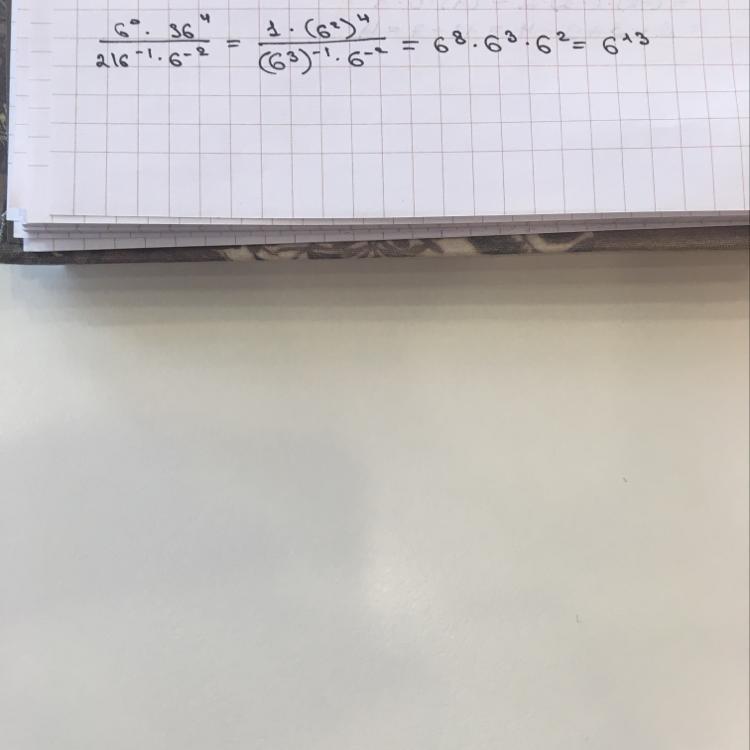 6⁰ · 36⁴ / 216⁻¹ · 6⁻² = 1 · (6²)⁴ / (6³)⁻¹ · 6⁻² = 6⁸ · 6³ · 6² = 6¹³